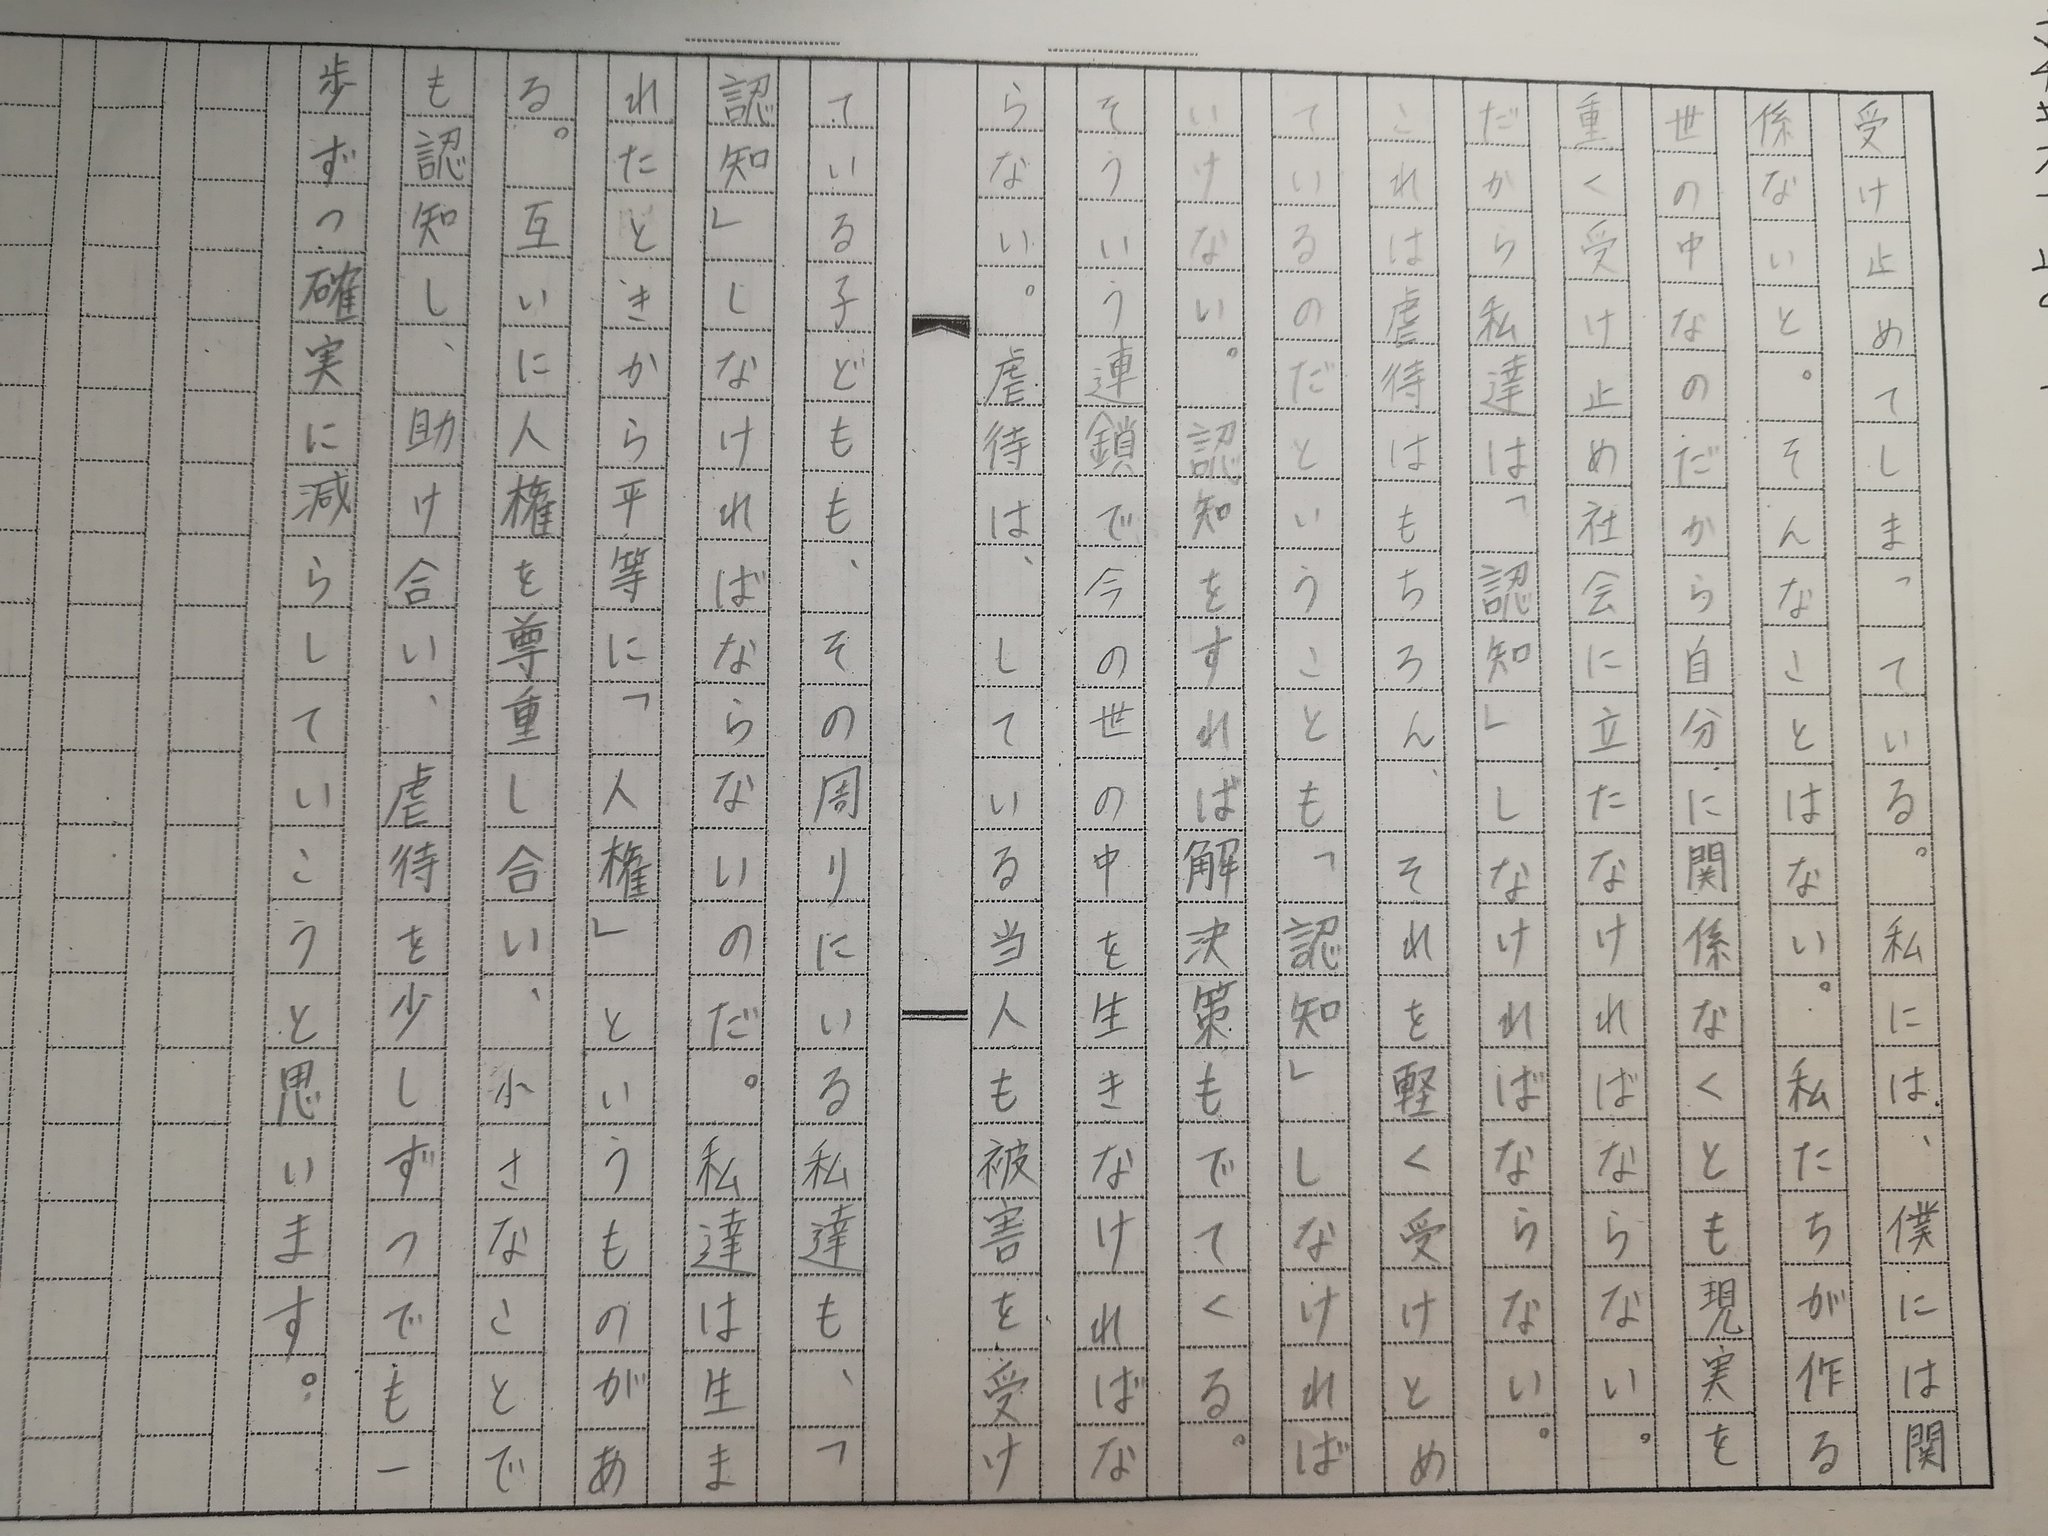 受け止めてしまっている。私には、僕には関
係ないと。そんなことはない。私たちが作る
世の中なのだから自分に関係なくとも現実を
重く受け止め社会に立たなければならない。
だから私達は「認知」しなければならない。
これは虐待はもちろん、それを軽く受けとめ
ているのだということも「認知」しなければ
いけない。認知をすれば解決策もでてくる。
そういう連鎖で今の世の中を生きなければな
らない。虐待は、している当人も被害を受け
ている子どもも、その周りにいる私達も、「
認知」しなければならないのだ。私達は生ま
れたときから平等に「人権」というものがあ
る。互いに人権を尊重し合い、小さなことで
も認知し、助け合い、虐待を少しずつでも一
歩ずつ確実に減らしていこうと思います。